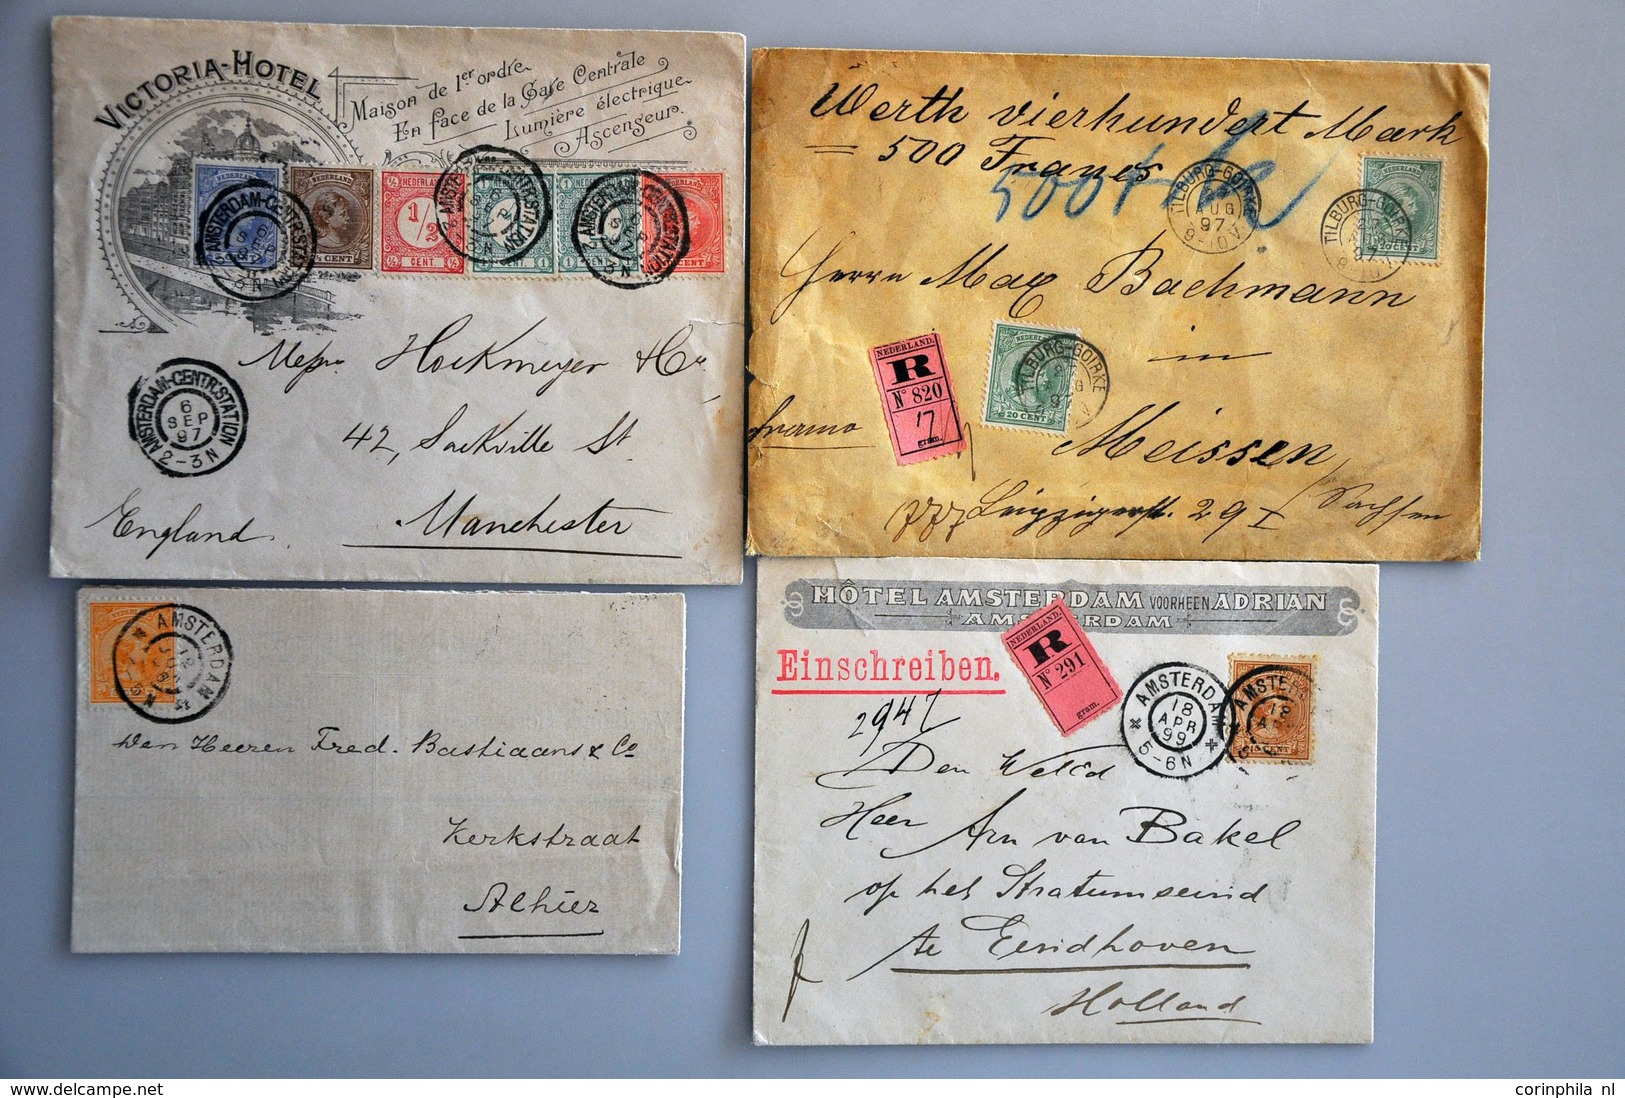 VICTORIA-HOTEL
Maison de 1er ordre
En face de la Gare Centrale
Lumière électrique
Ascenseur.
NEDERLAND
CENT
NEDERLAND
1/2
CENT.
AMSTERDAM-CENTR:STATION
AMSTERDAM-CENTR:STATION
6
SEP
97
2-3N
Hockmeyer & Co
42, Sackville St.
Manchester
England.
Werth vierhundert Mark
= 500 Francs
500
TILBURG-GOIRKE
AUG
97
9-10V
TILBURG-GOIRKE
20 CENT
Herrn Max Bachmann
in
Meissen
Leipzigerst. 29 I Sachsen
franco
NEDERLAND.
R
No 820
17
gram.
NEDERLAND
20 CENT
TILBURG-GOIRKE
AMSTERDAM
Den Heeren Fred. Bastiaans & Co
Kerkstraat
Alhier
HÔTEL AMSTERDAM VOORHEEN ADRIAN
AMSTERDAM
Einschreiben.
NEDERLAND.
R
No 291
gram.
2947
AMSTERDAM
18
APR
99
5-6N
AMSTERDAM
18
Den
Heer Arn van Bakel
op het Stratumseind
te Eendhoven
Holland
corinphila nl